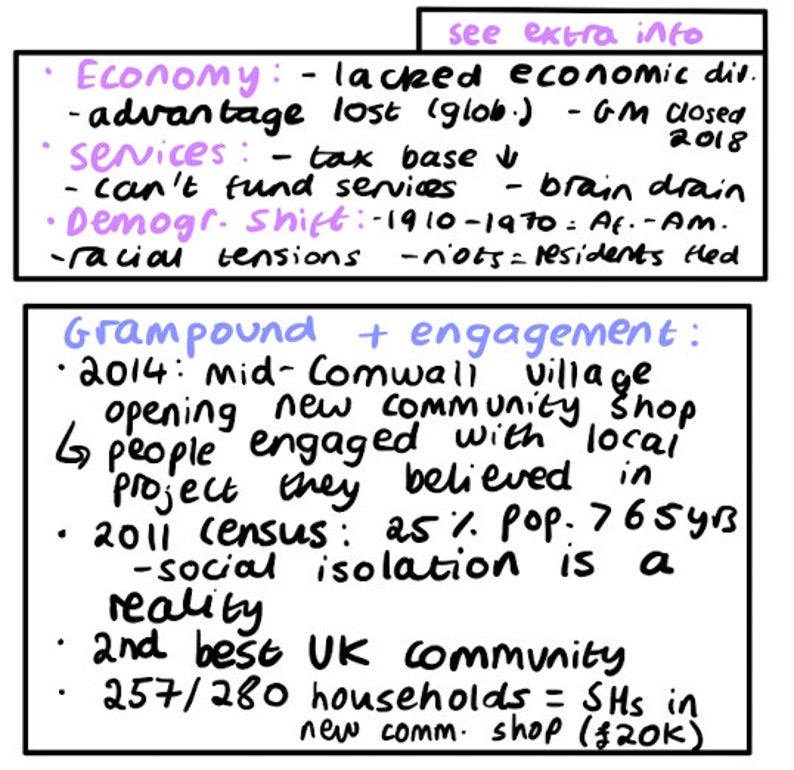 see extra info
· Economy: - lacked economic div.
- advantage lost (glob.) - GM closed 2018
· services: - tax base ↓
- can't fund services - brain drain
· Demogr. Shift: - 1910-1970 = Af.-Am.
- racial tensions - riots = residents fled
Grampound + engagement:
· 2014: mid-Cornwall village
opening new community shop
↳ people engaged with local
project they believed in
· 2011 census: 25% pop. > 65yrs
- social isolation is a
reality
· 2nd best UK community
· 257/280 households = SHs in
new comm. shop (£20K)